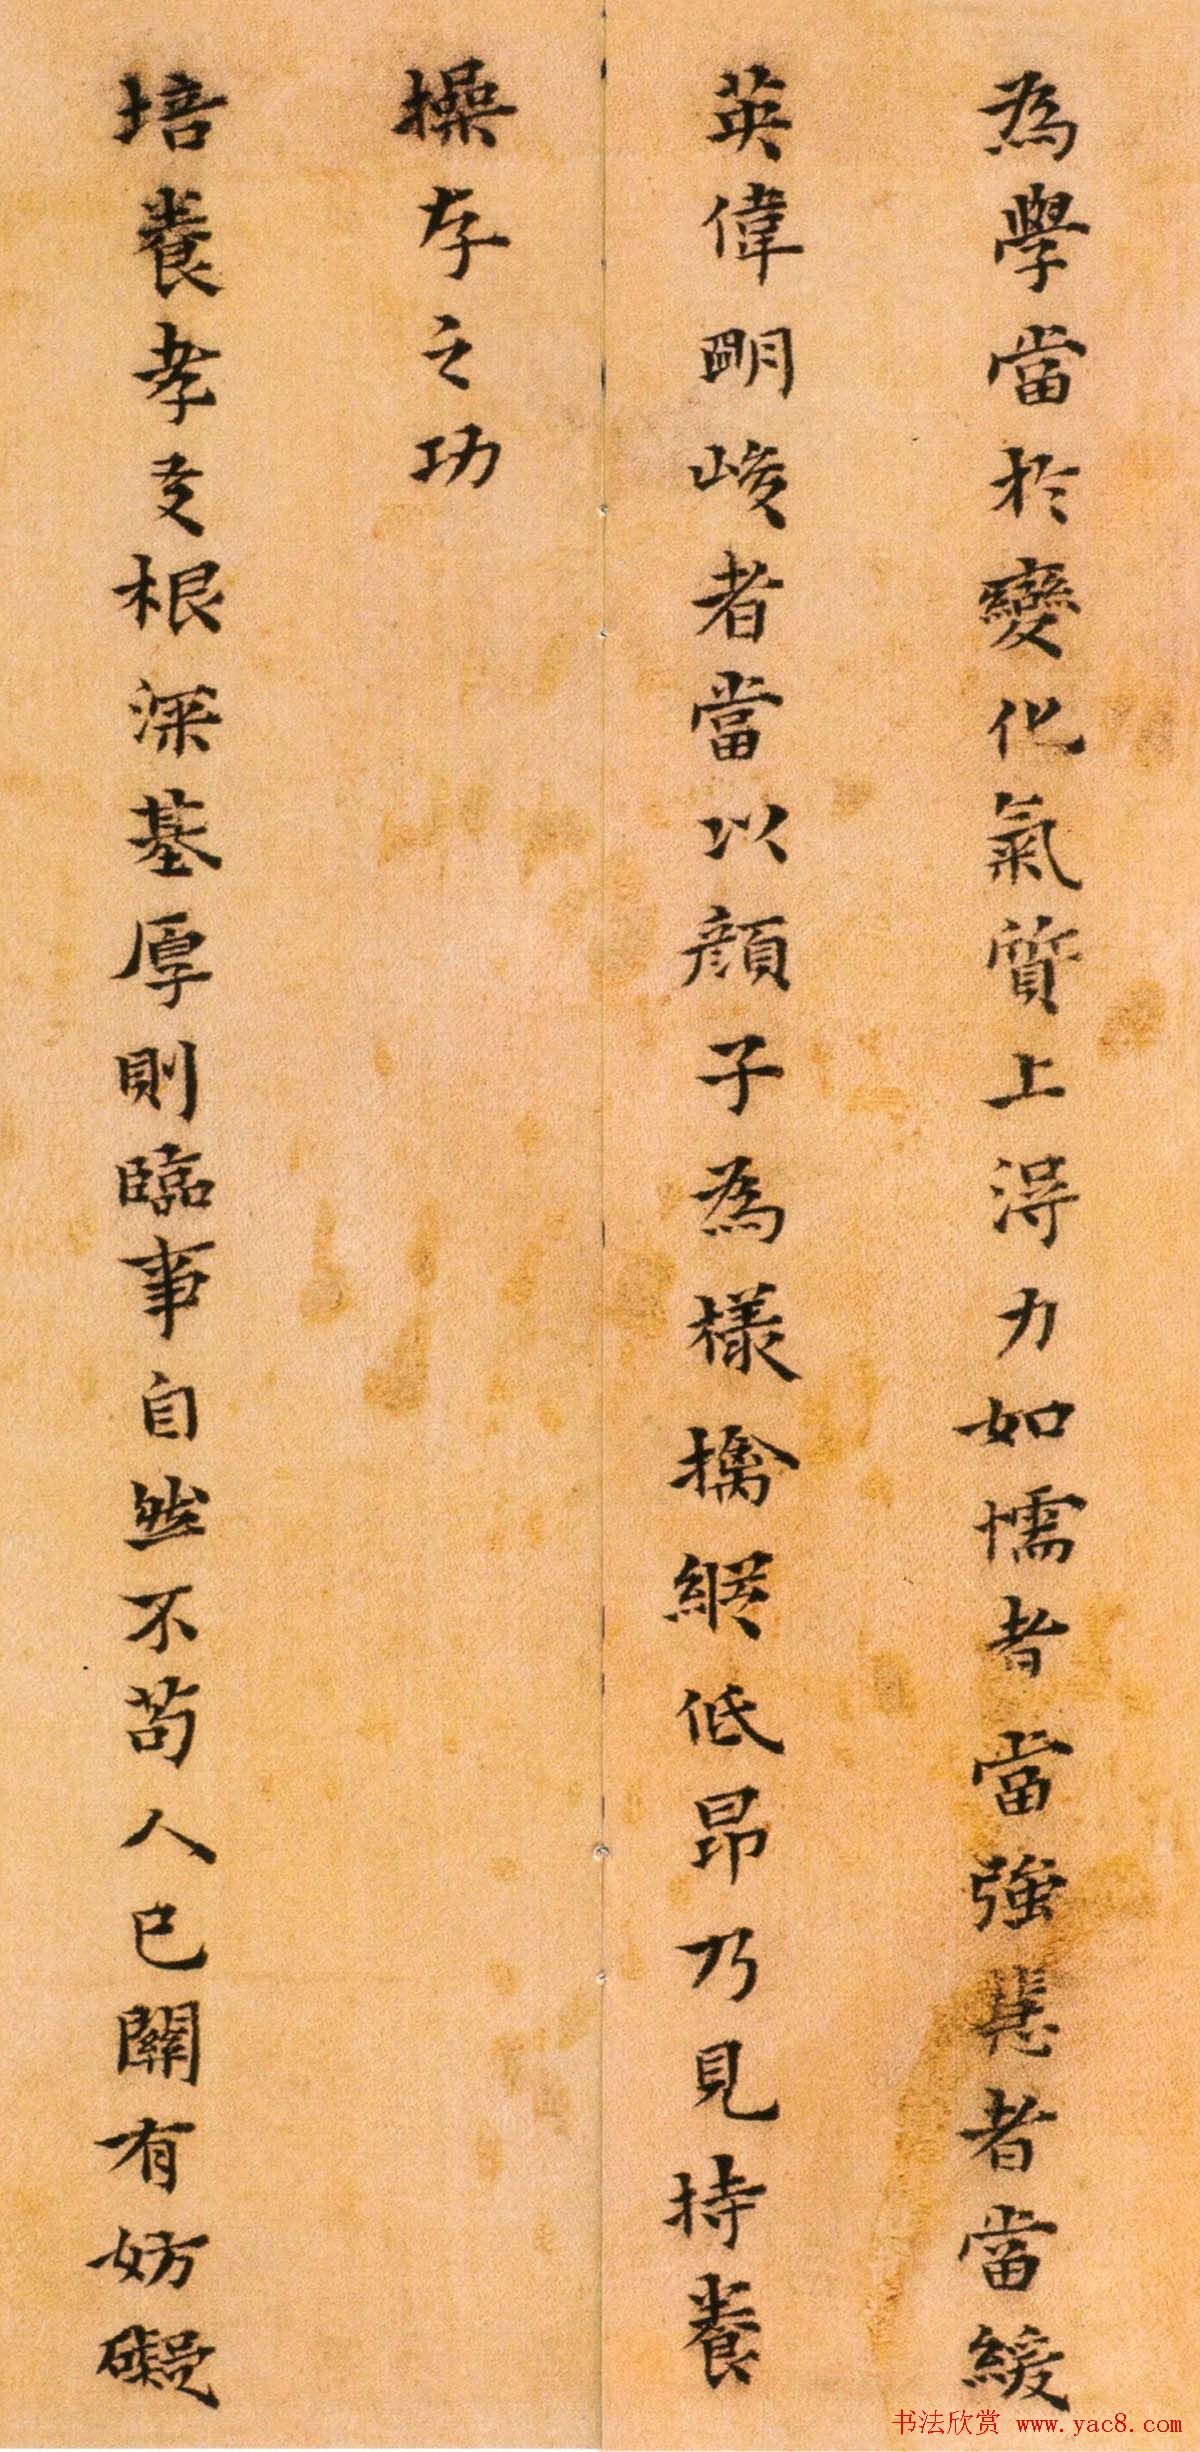 為學當於變化氣質上淂力如懦者當強恚者當緩
英偉明峻者當以顏子為樣擒縱低昂乃見持養
操存之功
培養孝友根深基厚則臨事自然不苟人己關有妨礙
书法欣赏 www.yac8.com